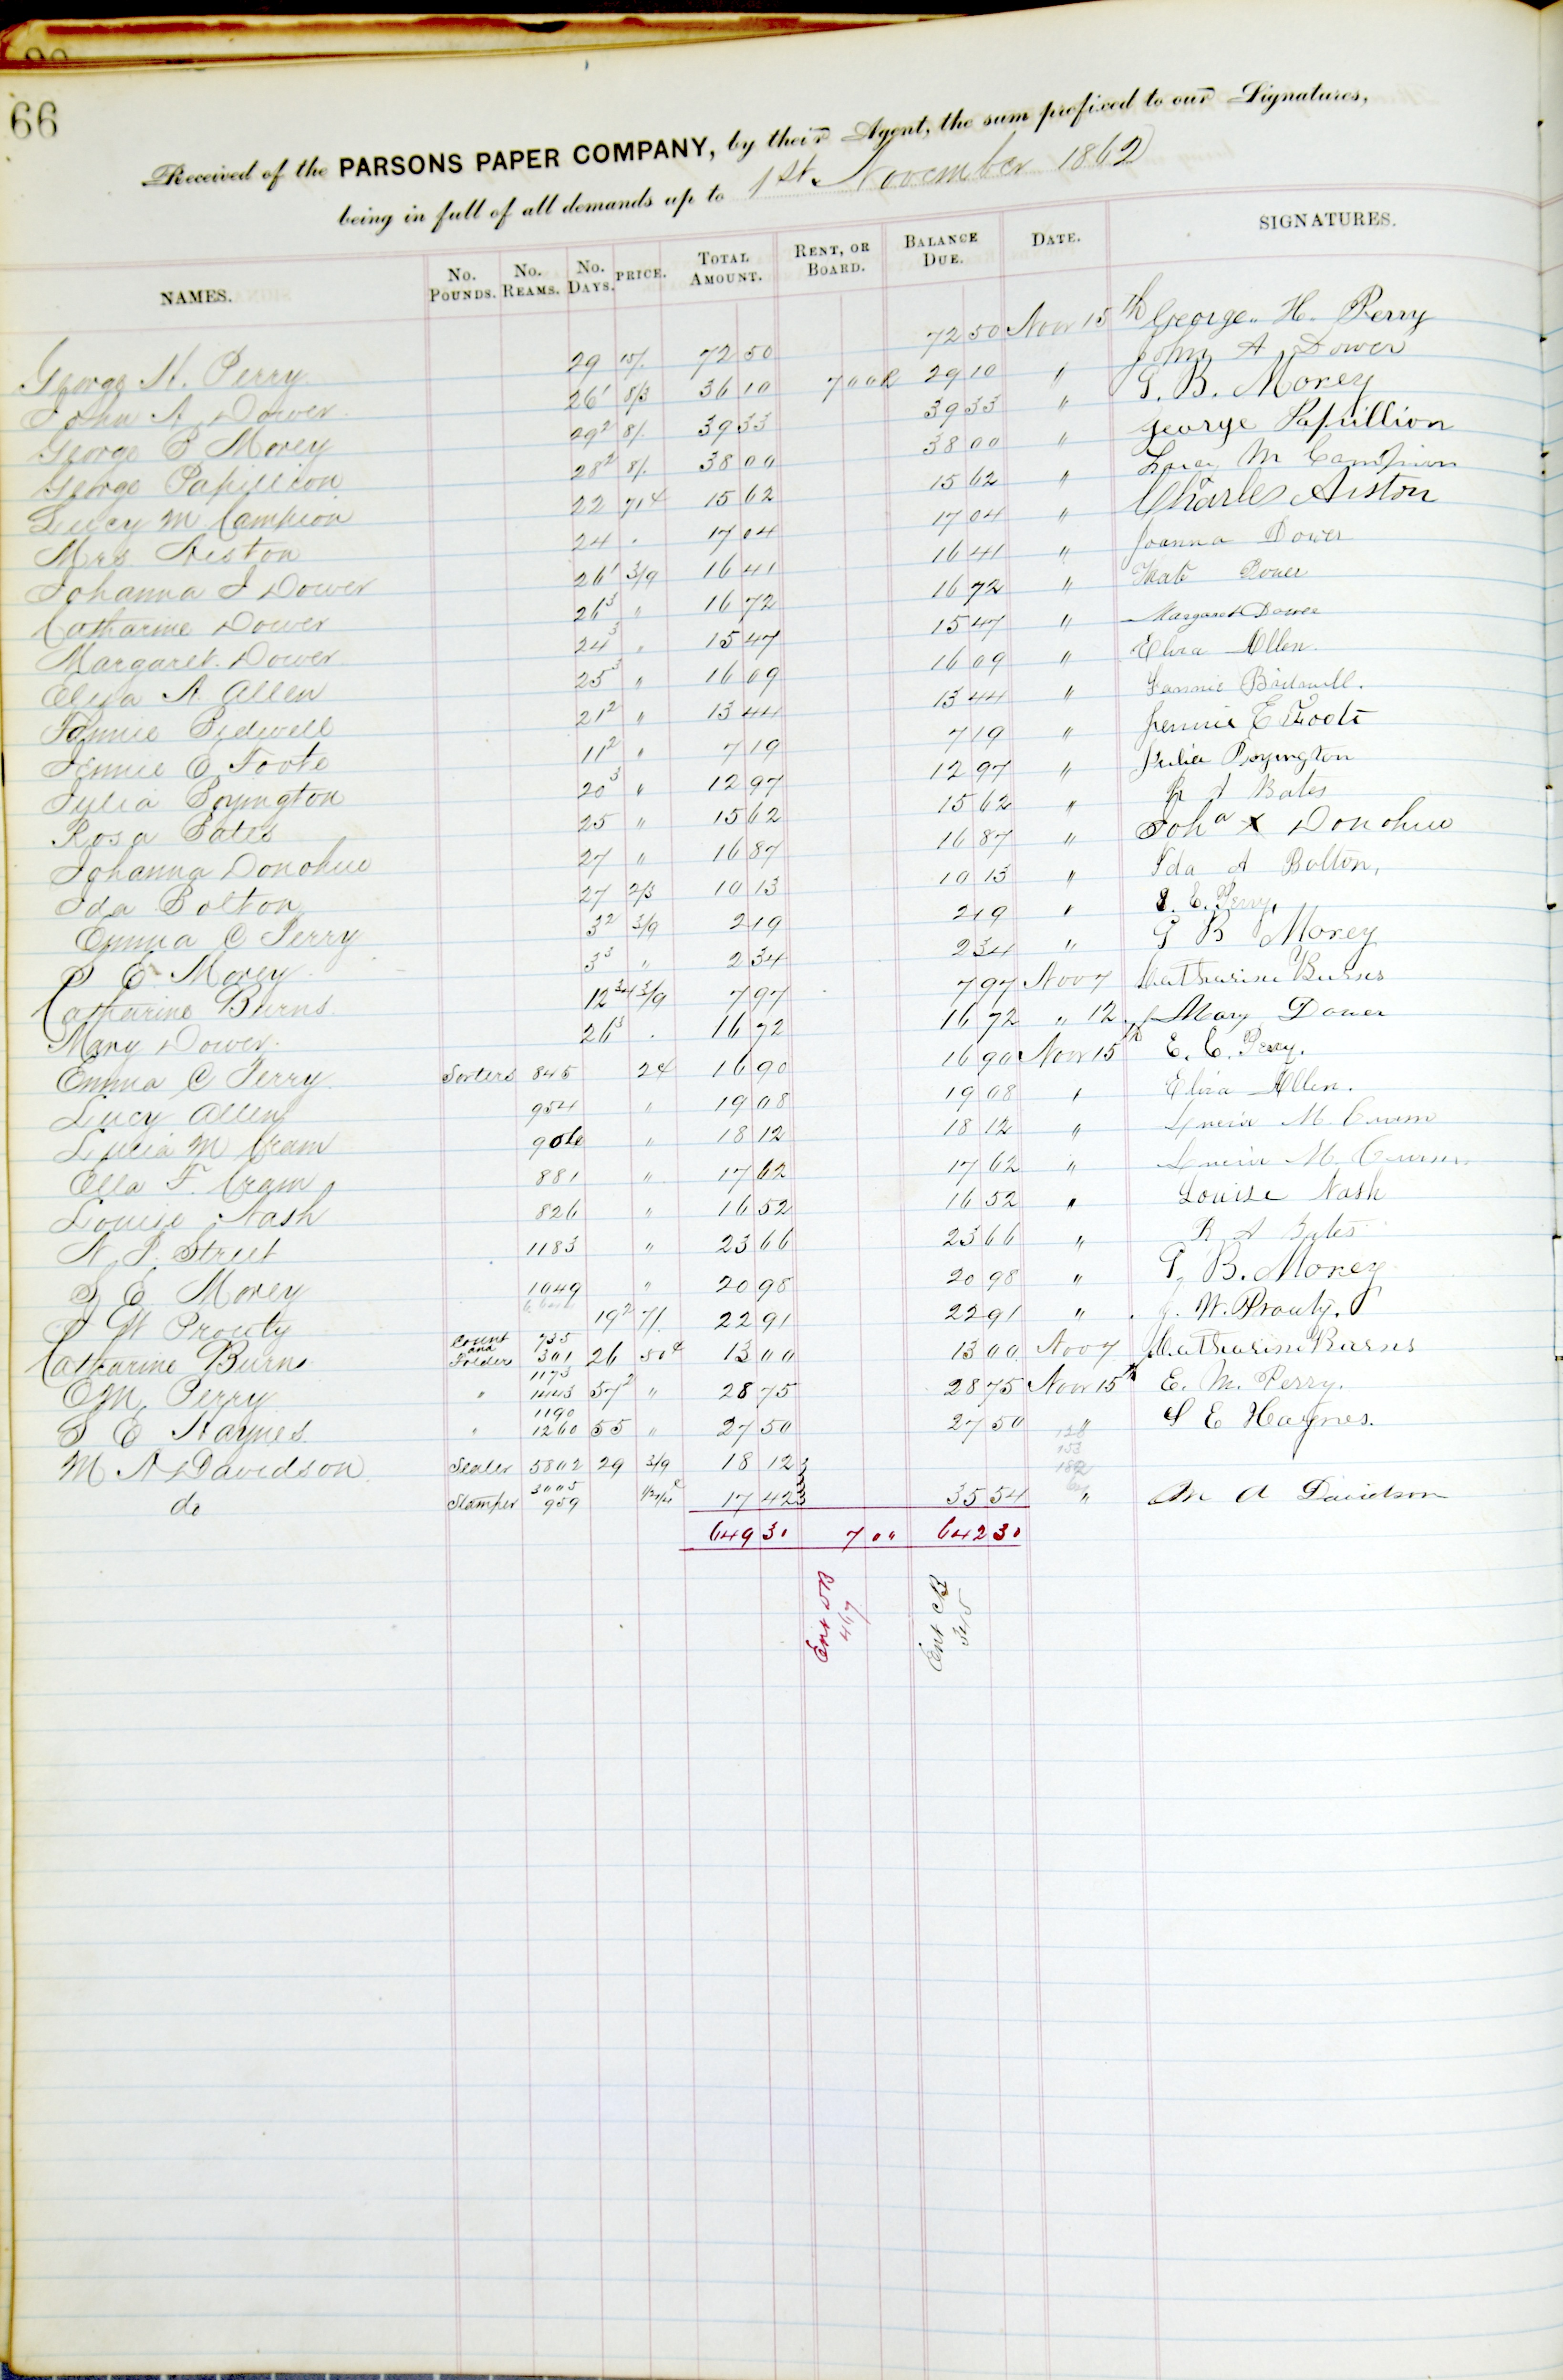 66
Received of the PARSONS PAPER COMPANY, by their Agent, the sum prefixed to our Signatures,
being in full of all demands up to 1st November 1862
NAMES. No. Pounds. No. Reams. No. Days. Price. Total Amount. Rent, or Board. Balance Due. Date. SIGNATURES.
George H. Perry 29 15/. 72 50 72 50 Nov 15th George. H. Perry
John A Dower 26¹ 8/3 36 10 7 00 R 29 10 " John A Dower
George B Morey 29² 8/. 39 33 39 33 " G. B. Morey
George Papillion 28² 8/. 38 00 38 00 " George Papillion
Lucy M Campion 22 71¢ 15 62 15 62 " Lucy M Campion
Mrs. Aiston 24 " 17 04 17 04 " Charles Aiston
Johanna J Dower 26¹ 3/9 16 41 16 41 " Joanna Dower
Catharine Dower 26³ " 16 72 16 72 " Kate Dower
Margaret Dower 24³ " 15 47 15 47 " Margaret Dower
Elvia A. Allen 25³ " 16 09 16 09 " Elvia Allen.
Fannie Bidwell 21² " 13 44 13 44 " Fannie Bidwell.
Jennie E Foote 11² " 7 19 7 19 " Jennie E Foote
Julia Boyington 20³ " 12 97 12 97 " Julia Boyington
Rosa Bates 25 " 15 62 15 62 " R A Bates
Johanna Donohue 27 " 16 87 16 87 " Joha X Donohue
Ida Bolton 27 2/3 10 13 10 13 " Ida A Bolton,
Emma C Perry 3² 3/9 2 19 2 19 " E. C. Perry,
S E Morey 3³ " 2 34 2 34 " G B Morey
Catharine Burns 12³ 3/9 7 97 7 97 Nov 7 Catharine Burns
Mary Dower 26³ " 16 72 16 72 " 12 Mary Dower
Emma C Perry Sorters 845 2¢ 16 90 16 90 Nov 15th E. C. Perry.
Lucy Allen 954 " 19 08 19 08 " Elvia Allen.
Lucia M Cram 906 " 18 12 18 12 " Lucia M. Cram
Ella F. Cram 881 " 17 62 17 62 " Lucia M. Cram
Louise Nash 826 " 16 52 16 52 " Louise Nash
N. P. Street 1183 " 23 66 23 66 " R A Bates
S E Morey 1049 " 20 98 20 98 " G. B. Morey
J W Prouty 19² 7/. 22 91 22 91 " J. W. Prouty.
Catharine Burns Count and Folders 735 301 26 50¢ 13 00 13 00 Nov 7 Catharine Burns
E M. Perry " 1173 1443 57² " 28 75 28 75 Nov 15th E. M. Perry.
S E Haynes " 1190 1260 55 " 27 50 27 50 " S E Haynes.
M A Davidson Sealer 5802 29 3/9 18 12
do Stamper 3005 959 17 42 35 54 " M A Davidson
649 30 7 00 642 30
Ent DB 467
Ent CB 345